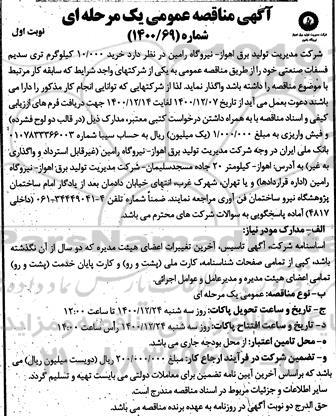 آگهی مناقصه عمومی یک مرحله ای
شماره (۱۴۰۰/۶۹)
نوبت اول
شرکت مدیریت تولید برق اهواز- نیروگاه رامین در نظر دارد خرید ۱۰/۰۰۰ کیلوگرم تری سدیم
فسفات صنعتی خود را از طریق مناقصه عمومی به یکی از شرکتهای واجد شرایط که سابقه کار مرتبط
با موضوع مناقصه را داشته باشد واگذار نماید. لذا از شرکتهایی که توانایی انجام کار مذکور را دارا می
باشند دعوت بعمل می آید از تاریخ ۱۴۰۰/۱۲/۰۷ لغایت ۱۴۰۰/۱۲/۱۴ جهت دریافت فرم های ارزیابی
کیفی و اسناد مناقصه با به همراه داشتن درخواست کتبی معتبر، مدارک ذیل (در قالب دو لوح فشرده)
و فیش واریزی به مبلغ ۱/۰۰۰/۰۰۰ (یک میلیون) ریال به حساب سیبا شماره ۰۱۰۷۸۳۳۳۶۶۰۰۳
بانک ملی ایران در وجه شرکت مدیریت تولید برق اهواز- نیروگاه رامین (غیرقابل استرداد و واگذاری
به غیر) به آدرس: اهواز- کیلومتر ۲۰ جاده مسجدسلیمان- شرکت مدیریت تولید برق اهواز- نیروگاه
رامین (اداره قراردادها) و یا تهران، شهرک غرب، انتهای خیابان دادمان بعد از یادگار امام ساختمان
پژوهشگاه نیرو ساختمان فن آوری مراجعه نمایند. ضمناً شماره تلفن ۴-۳۴۴۴۹۰۴۱-۰۶۱ (داخلی
۴۸۱۷) آماده پاسخگویی به سوالات شرکت های محترم می باشد.
الف- مدارک مورد نیاز:
اساسنامه شرکت، آگهی تاسیس، آخرین تغییرات اعضای هیئت مدیره که دو سال از آن نگذشته
باشد، کپی از تمامی صفحات شناسنامه، کارت ملی (پشت و رو) و کارت پایان خدمت (پشت و رو)
تمامی اعضای هیئت مدیره و مدیرعامل و عوامل اجرائی.
ب- نوع مناقصه: عمومی یک مرحله ای
ج- تاریخ و ساعت تحویل پاکات: روز سه شنبه ۱۴۰۰/۱۲/۲۴ تا ساعت ۱۲:۰۰
د- تاریخ و ساعت افتتاح پاکات: روز سه شنبه ۱۴۰۰/۱۲/۲۴ رأس ساعت ۱۴:۰۰
ه- محل تامین اعتبار: از محل بودجه جاری می باشد.
و- تضمین شرکت در فرآیند ارجاع کار: مبلغ ۲۰۰/۰۰۰/۰۰۰ ریال (دویست میلیون ریال) می باشد
که براساس آخرین آیین نامه تضمین برای معاملات دولتی می بایست تهیه و تسلیم گردد.
سایر اطلاعات و جزئیات مربوط در اسناد مناقصه مندرج است.
حق الدرج دو نوبت آگهی در روزنامه به عهده برنده مناقصه می باشد.